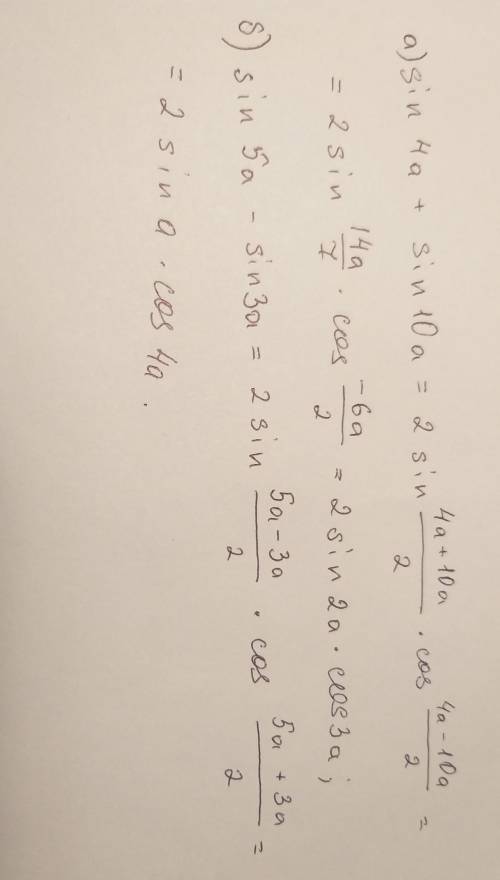 а) sin 4a + sin 10a = 2 sin (4a+10a)/2 · cos (4a-10a)/2 =
= 2 sin 14a/7 · cos -6a/2 = 2 sin 2a · cos 3a ;
б) sin 5a - sin 3a = 2 sin (5a-3a)/2 · cos (5a+3a)/2 =
= 2 sin a · cos 4a .